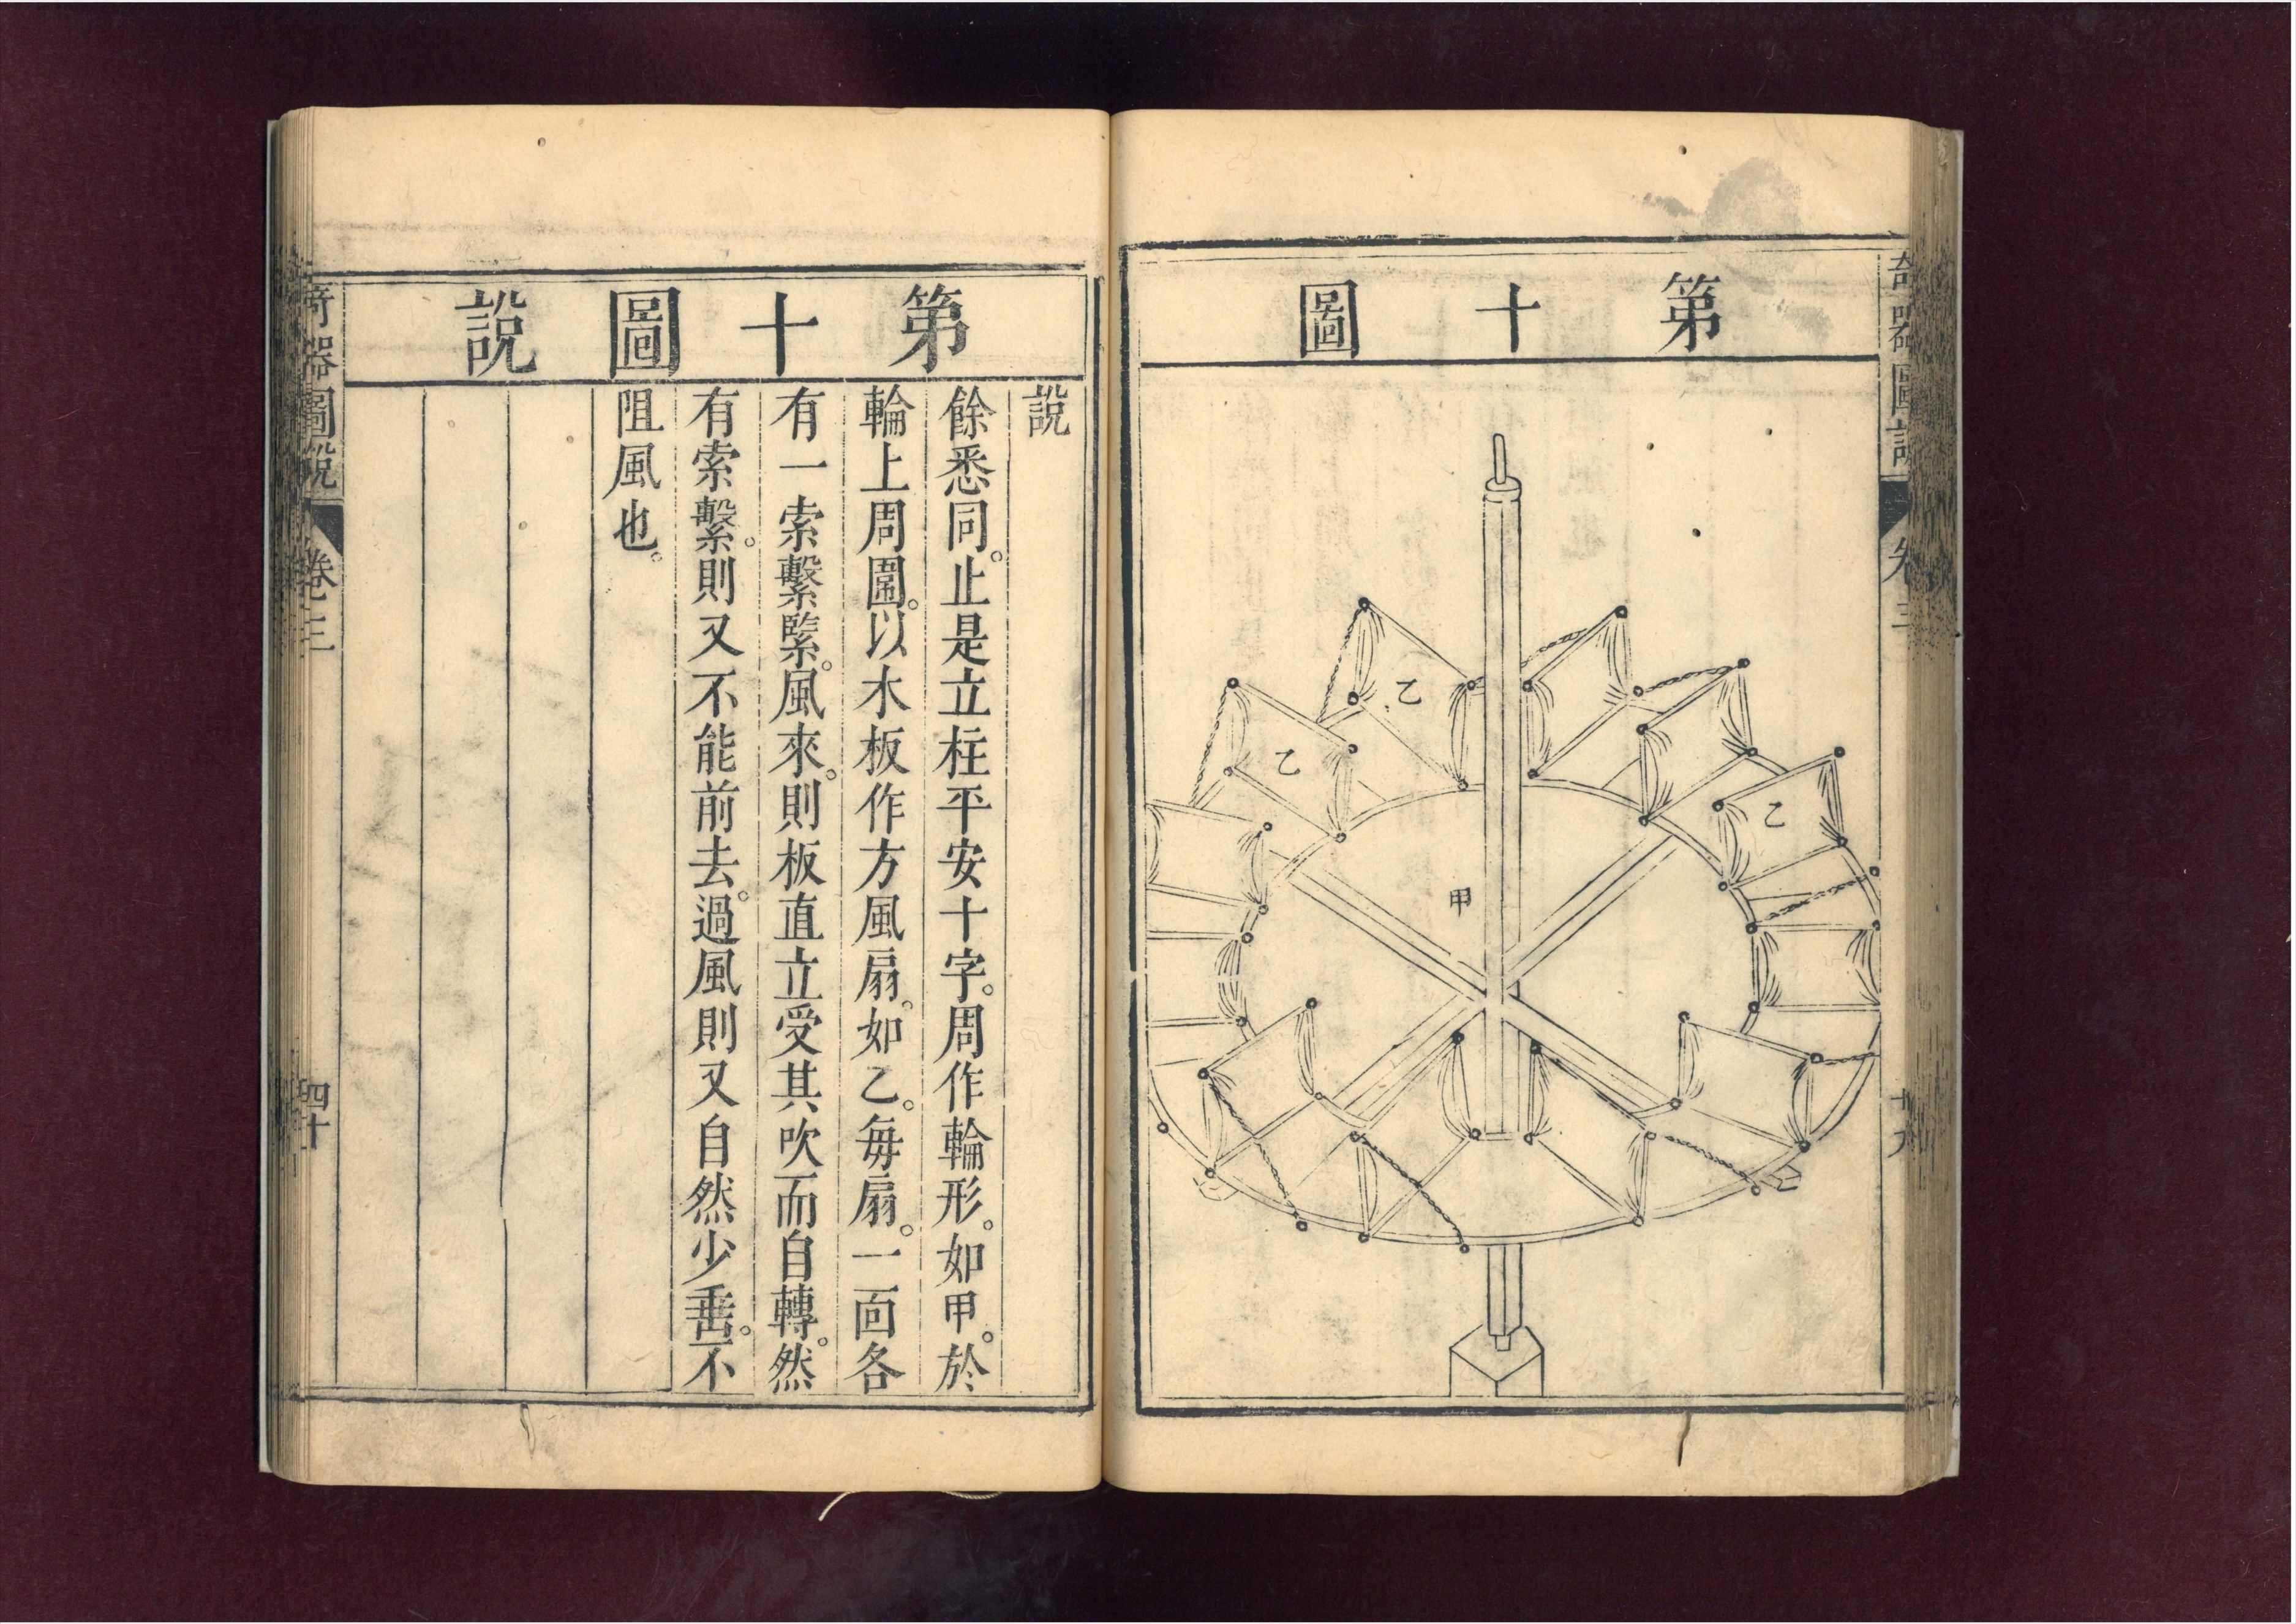 第十圖
乙
乙
乙
甲
奇器圖說
卷三
第十圖說
說
餘悉同。止是立柱平安十字。周作輪形。如甲。於
輪上周圍。以木板作方風扇。如乙。每扇。一面各
有一索繫緊。風來。則板直立受其吹而自轉。然
有索繫。則又不能前去。過風則又自然少垂。不
阻風也。
奇器圖說
卷三
四十